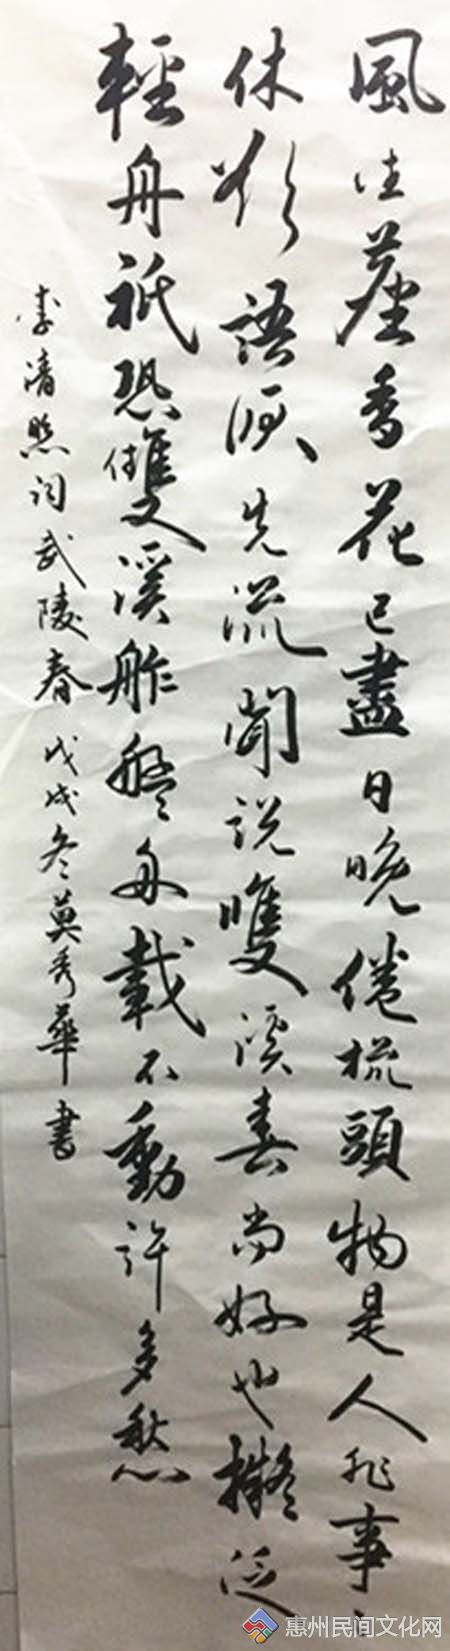 風住塵香花已盡日晚倦梳頭物是人非事々
休欲語淚先流聞說雙溪春尚好也擬泛
輕舟祇恐雙溪舴艋舟載不動許多愁
李清照詞武陵春 戊戌冬莫秀華書
惠州民间文化网